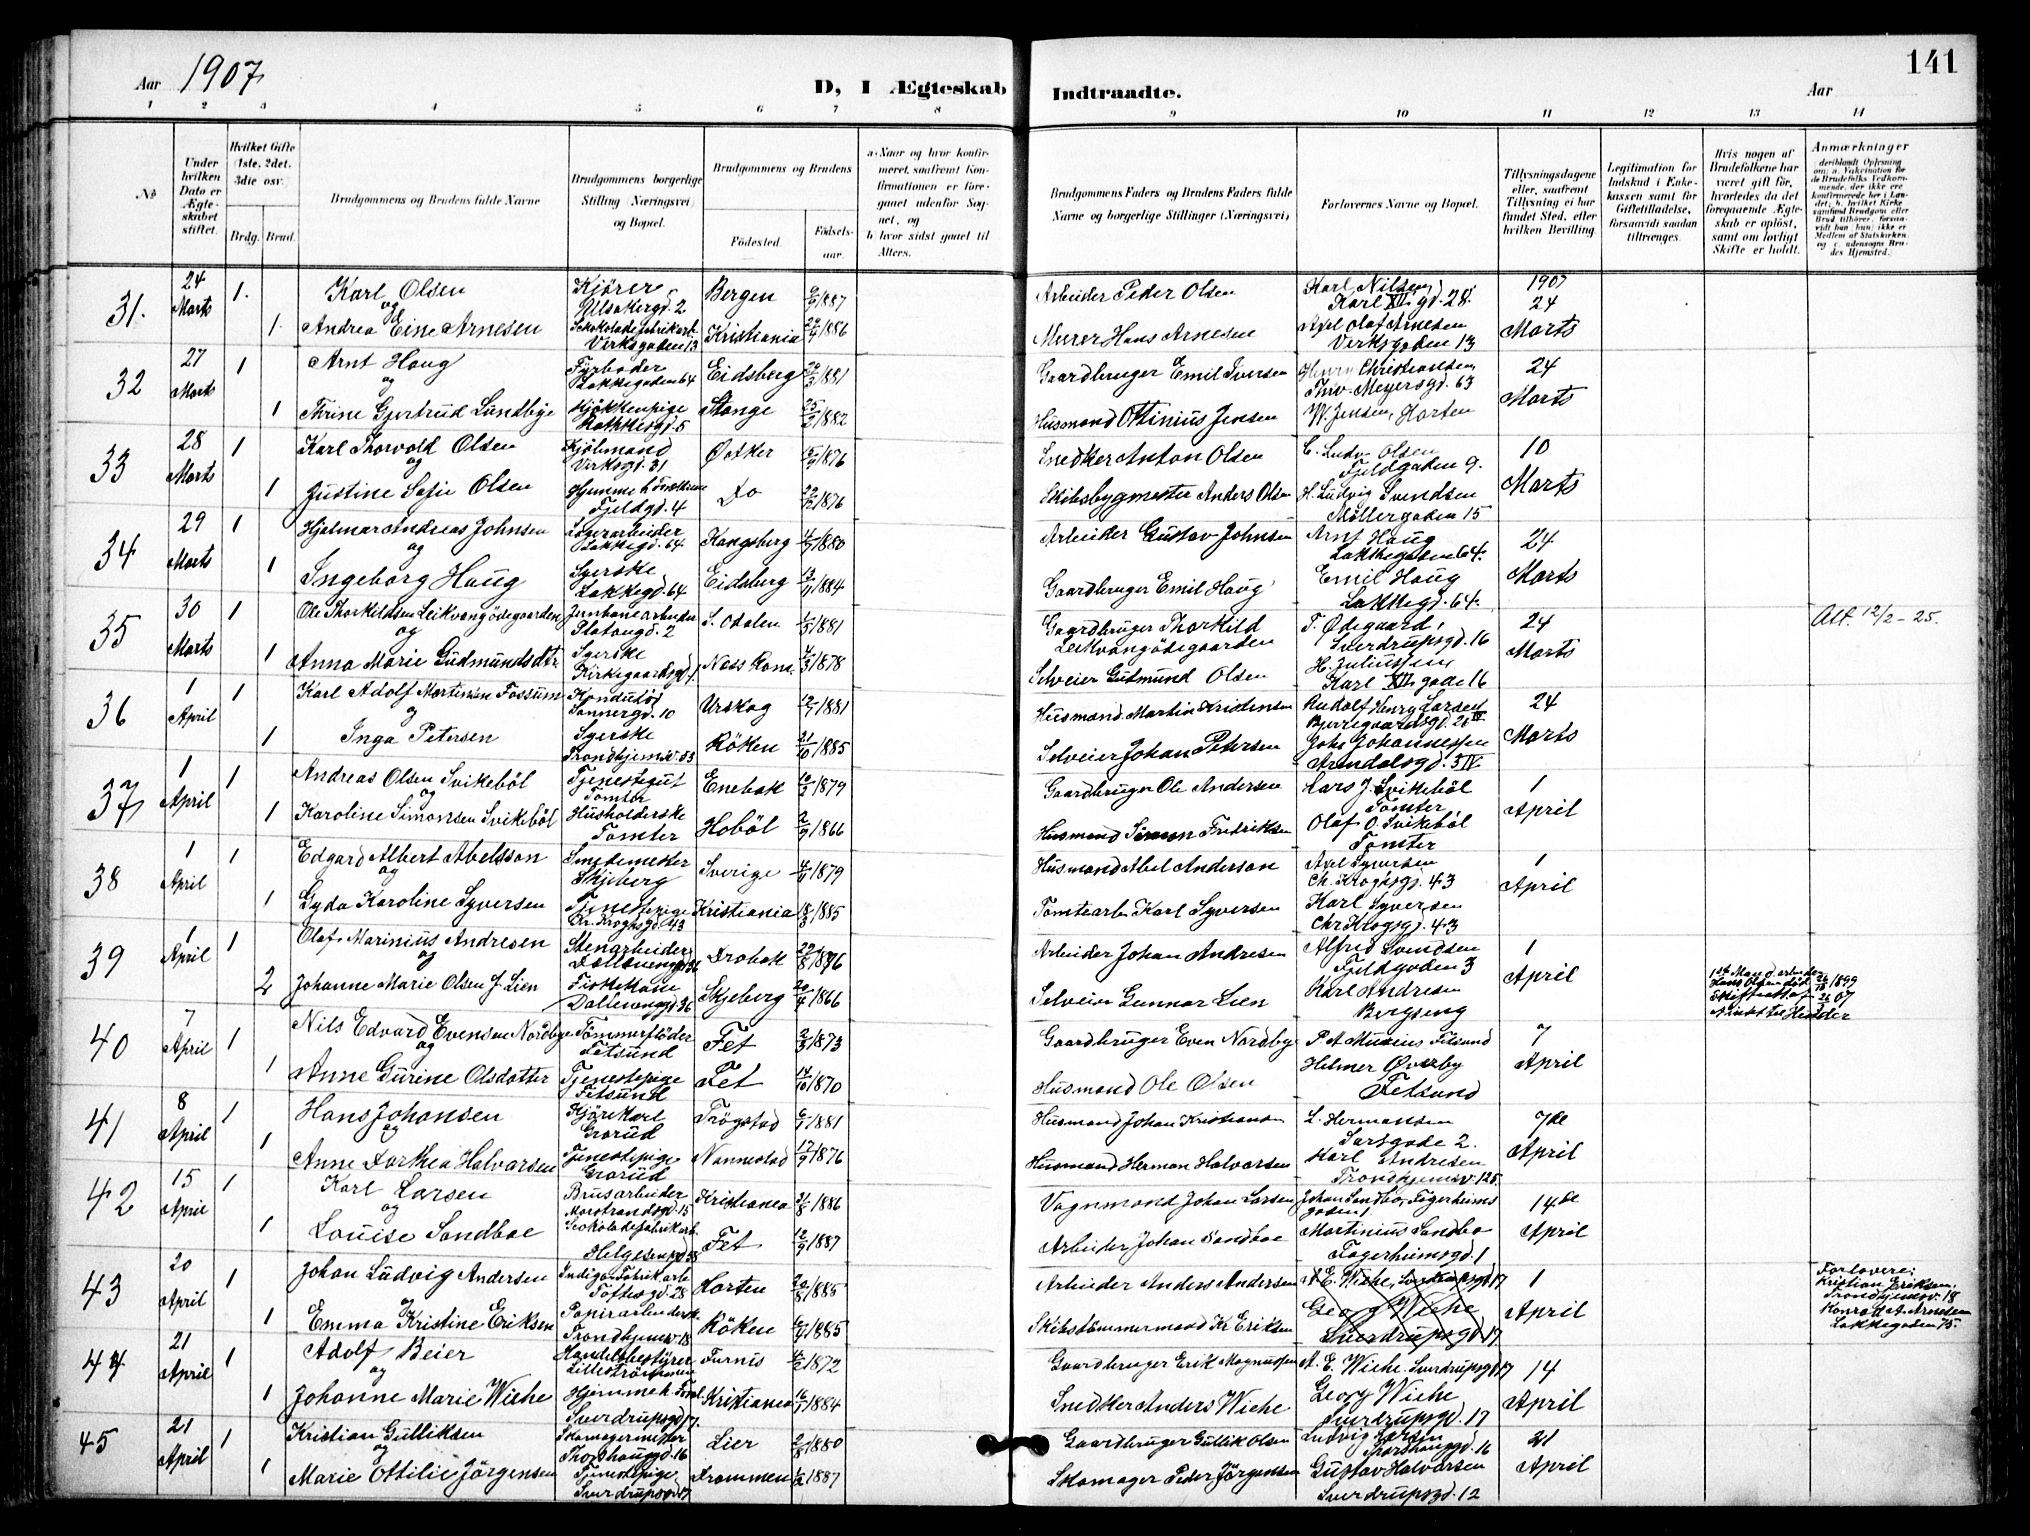 Aar 1907
D, I Ægteskab Indtraadte.
Aar
141
1 2 3 4 5 6 7 8 9 10 11 12 13 14
No
Under hvilken Dato er Ægteskabet stiftet.
Hvilket Gifte (1ste, 2det, 3die osv.
Brdg. Brud.
Brudgommens og Brudens fulde Navne
Brudgommens borgerlige Stilling (Næringsvei) og Bopæl.
Brudgommens og Brudens
Fødested. Fødselsaar.
a. Naar og hvor konfirmeret, saafremt Konfirmationen er foregaaet udenfor Sognet, og
b. hvor sidst gaaet til Alters.
Brudgommens Faders og Brudens Faders fulde Navne og borgerlige Stillinger (Næringsvei)
Forlovernes Navne og Bopæl.
Tillysningsdagene eller, saafremt Tillysning ei har fundet Sted, efter hvilken Bevilling.
Legitimation for Indskud i Enkekassen samt for Giftetilladelse, forsaavidt saadan tiltrænges.
Hvis nogen af Brudefolkene har været gift før, hvorledes da det foregaaende Ægteskab er opløst, samt om lovligt Skifte er holdt.
Anmærkninger
31. 24 Marts 1. Karl Olsen Kjører Bergen 1887 Arbeider Peder Olsen Karl Nilsen Karl XII gd. 28 1907 24 Marts
og
1. Andrea Eine Arnesen Sjokoladefabrikarb. Verksgaden 13 Kristiania 1886 Murer Hans Arnesen Axel Olaf Arnesen Verksgaden 13
32 27 Marts 1 Arnt Haug Fyrbøder Lakkegaden 64 Eidsberg 1881 Gaardbruger Emil Iversen Henry Christiansen Thv. Meyersgd. 63 24 Marts
og
1 Thrine Gjertrud Lundbye Kjøkkenpige Rathkesgd. 5 Stange 1882 Husmand Ottinius Jensen W. Jensen, Horten
33 28 Marts 1 Karl Thorvald Olsen Kjølmand Verksgd. 31 Østker 1876 Snedker Anton Olsen C. Ludv. Olsen Fjeldgaden 9. 10 Marts
og
1 Justine Sofie Olsen Hjemme h. Forældrene Fjeldgd. 4 Do 1876 Skibsbygmester Anders Olsen H. Ludvig Svendsen Møllergaden 15
34 29 Marts 1 Hjalmar Andreas Johnsen Lagerarbeider Lakkegd. 64 Kongsberg 1880 Arbeider Gustav Johnsen Arnt Haug Lakkegaden 64. 24 Marts
og
1 Ingeborg Haug Syerske Lakkegd. 64 Eidsberg 1884 Gaardbruger Emil Haug Emil Haug Lakkegd. 64.
35 30 Marts 1 Ole Thorkildsen Leikvangødegaarden Jernbanearbeider Platougd. 2 S. Odalen 1881 Gaardbruger Thorkild Leikvangødegaarden T. Ødegaard, Sverdrupsgd. 16 24 Marts Att. 12/2 - 25.
og
1 Anna Marie Gudmundsdtr Syerske Kirkegaardsgd. Næs Rom. 1878 Selveier Gutmund Olsen H. Juliussen Karl XII gade 16
36 1 April 1 Karl Adolf Martinsen Fossum Konduktør Sannergd. 10 Urskog 1881 Husmand Martin Kristensen Rudolf Henry Larsen Bjerregaardsgd. 24 Marts
og
1 Inga Petersen Syerske Trondhjemsv. 33 Røken 21/10 1885 Selveier Johan Petersen Johs Johannessen Arendalsgd. 3 IV.
37 1 April 1 Andreas Olsen Svikebøl Tjenestegut Tomter Enebak 1879 Gaardbruger Ole Andersen Lars J. Svikebøl Tomter 1 April
og
1 Karoline Simonsen Svikebøl Husholderske Tomter Hobøl 1866 Husmand Simon Fredriksen Olaf O. Svikebøl Tomter
38 1 April 1 Edgard Albert Abelsson Smedemester Skjeberg Sverige 1879 Husmand Abel Anderson Axel Syversen Ch. Kroghsgd. 43 1 April
og
1 Gyda Karoline Syversen Tjenestepige Chr. Kroghsgd. 43 Kristiania 18/3 1885 Tomtearb. Karl Syversen Karl Syversen Chr. Krogsgd. 43
39 1 April 1 Olaf Marinius Andresen Stenarbeider Dælenengd. 36 Drøbak 29/8 1876 Arbeider Johan Andresen Alfred Svendsen Fjeldgaden 3 1 April
og
2 Johanne Marie Olsen f. Lien Fiskekone Dælenengd. 36 Skjeberg 20/4 1866 Selveier Gunnar Lien Karl Andresen Bergseng
1ste Mand arbeider Lars Olsen død 1899 Skifteattest 07
40 7 April 1 Nils Edvard Evensen Nordbye Tømmerfløder Fetsund Fet 2/3 1873 Gaardbruger Even Nordby Fetsund 7 April
og
1 Anne Gurine Olsdatter Tjenestepige Fetsund Fet 14/10 1870 Husmand Ole Olsen Helmer Øverby Fetsund
41 8 April 1 Hans Johansen Kjørekarl Grorud Trøgstad 1881 Husmand Johan Kristiansen L. Hermansen Sarsgade 2. 7de April
og
1 Anne Dorthea Halvorsen Tjenestepige Grorud Nannestad 17/9 1876 Husmand Herman Halvorsen Karl Andresen Trondhjemsv. 125.
42 15 April 1 Karl Larsen Brusarbeider Marstrandsgd. 15 Kristiania 1886 Vognmand Johan Larsen Johan Sandbo, Fagerheimsgaden 1 14de April
og
1 Louise Sandboe Sjokoladefabrikarb. Helgesensgd. 58 Fet 12/9 1887 Arbeider Johan Sandboe Martinius Sandbo Fagerheimsgd. 1
43 20 April 1 Johan Ludvig Andersen Indigofabrikarb. Toftesgd. 28 Horten 1885 Arbeider Anders Andersen A. E. Wiehe, Sverdrupsgd 17 1 April
og
1 Emma Kristine Eriksen Papirarbeiderske Trondhjemsv. 18 Røken 1885 Skibstømmermand Kr Eriksen Georg Wiehe Sverdrupsgd. 17
Forlovere: Kristian Eriksen, Trondhjemsv. 18 Konrad A. Arnesen Lakkegaden 75.
44 21 April 1 Adolf Beier Handelsbestyrer Lillestrømmen Furnes 1872 Gaardbruger Erik Magnussen A. E. Wiehe. Sverdrupsgd 17 14 April
og
1 Johanne Marie Wiehe Hjemme h. Foræl. Sverdrupsgd. 17. Kristiania 1884 Snedker Anders Wiehe Georg Wiehe Sverdrupsgd. 17
45 21 April 1 Kristian Gulliksen Skomagermester Thorshaugd. 16 Lier 1880 Gaardbruger Gullik Olsen Ludvig Larsen Thorshaugd. 16 21 April
og
1 Marie Ottilie Jørgensen Tjenestepige Sverdrupsgd 17 Drammen 1887 Skomager Peder Jørgensen Gustav Halvorsen Sverdrupsgd. 12